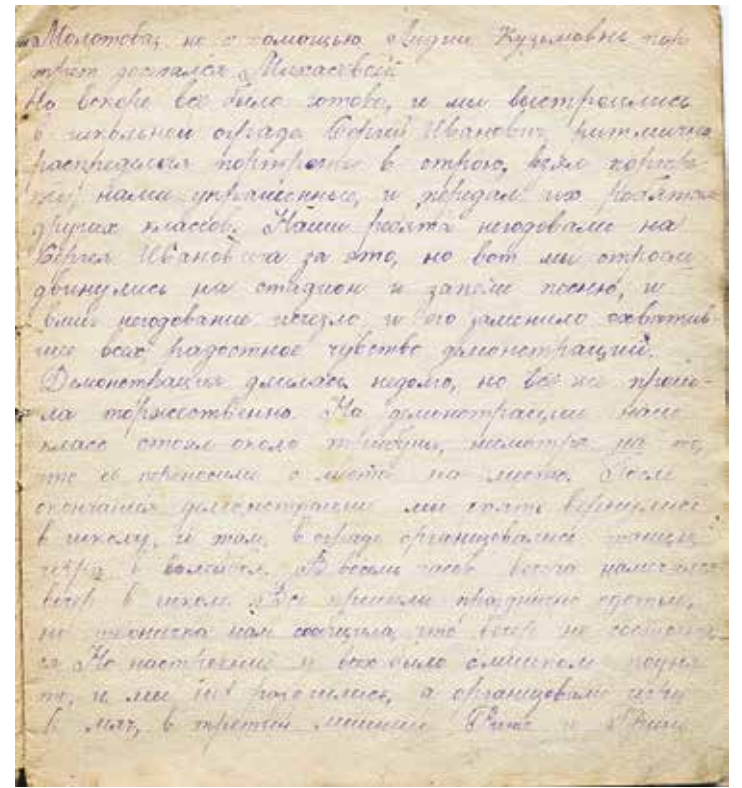 Молотова, но с помощью Лидии Кузьмовны пор
трет достался Михасевой
Но вскоре все было готово, и мы выстроились
в школьной ограде. Сергей Иванович, ритмично
распределяя портреты в строю, взял портре
ты, нами украшенные, и передал их ребятам
других классов. Наши ребята негодовали на
Сергея Ивановича за это, но вот мы строем
двинулись на стадион и запели песню, и
негодование исчезло, и его заменило охватив-
шее всех радостное чувство демонстрации.
Демонстрация длилась недолго, но все же прош-
ла торжественно. На демонстрации наш
класс стоял около трибуны, несмотря на то,
что ее переносили с места на место. После
окончания демонстрации мы опять вернулись
в школу, и там, в ограде организовались танцы,
игра в волейбол. В восемь часов вечера намечался
вечер в школе. Все пришли празднично одетые,
но техничка нам сообщила, что вечер не состоит
ся. Но настроение у всех было слишком подня
то, и мы не разошлись, а организовали игры
в мяч, в третий лишний